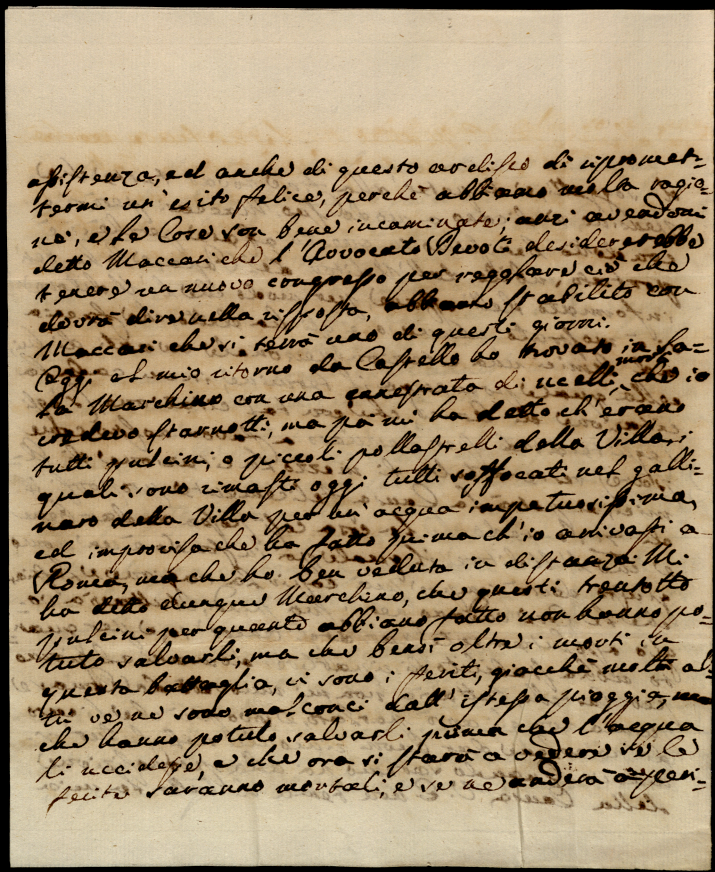 assistenza, ed anche di questo ardisco di ripromet-
termi un' esito felice, perchè abbiamo molta ragio-
ne, e le Cose son bene incaminate; anzi avendomi
detto Maccari che l'Avvocato Devoti desidererebbe
tenere un nuovo congresso per regolare ciò che
dovrà dire nella risposta, abbiamo stabilito con
Maccari che si terrà uno di questi giorni.
Oggi al mio ritorno da Castello ho trovato in Sa-
la Marchino con una canestrata di ucelli morti, che io
credevo starnotti, ma poi mi ha detto ch' erano
tutti pulcini, o piccoli pollastrelli della Villa, i
quali sono rimasti oggi tutti soffocati nel galli-
naro della Villa per un' acqua impetuosissima,
ed improvisa che ha fatto prima ch' io arrivassi a
Roma, ma che ho ben veduta in distanza. Mi
ha detto dunque Marchino, che questi trentotto
pulcini per quanto abbiano fatto non hanno po-
tuto salvarli, ma che bensì oltre i morti in
questa battaglia, ci sono i feriti, giacchè molti al-
tri ve ne sono malconci dall' istessa pioggia, ma
che hanno potuto salvarli prima che l'acqua
li uccidesse, e che ora si starà a vedere se le
ferite saranno mortali, e se ne anderà